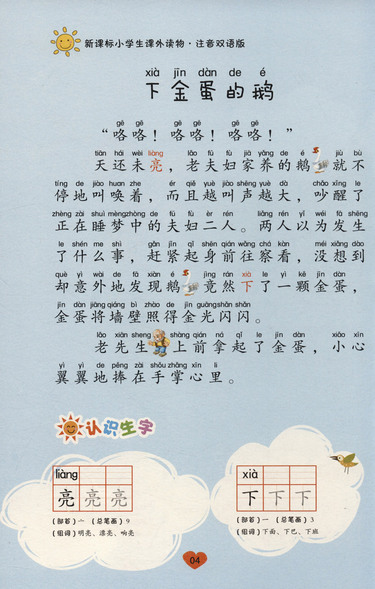 新课标小学生课外读物·注音双语版
xià jīn dàn de é
下金蛋的鹅
gē gē gē gē gē gē
“咯咯！咯咯！咯咯！”
tiān hái wèi liàng lǎo fū fù jiā yǎng de é jiù bù
天还未亮，老夫妇家养的鹅就不
tíng de jiào huan zhe ér qiě yuè jiào shēng yuè dà chǎo xǐng le
停地叫唤着，而且越叫声越大，吵醒了
zhèng zài shuì mèng zhōng de fū fù èr rén liǎng rén yǐ wéi fā shēng
正在睡梦中的夫妇二人。两人以为发生
le shén me shì gǎn jǐn qǐ shēn qián wǎng chá kàn méi xiǎng dào
了什么事，赶紧起身前往察看，没想到
què yì wài de fā xiàn é jìng rán xià le yì kē jīn dàn
却意外地发现鹅竟然下了一颗金蛋，
jīn dàn jiāng qiáng bì zhào de jīn guāng shǎn shǎn
金蛋将墙壁照得金光闪闪。
lǎo xiān sheng shàng qián ná qǐ le jīn dàn xiǎo xīn
老先生上前拿起了金蛋，小心
yì yì de pěng zài shǒu zhǎng xīn lǐ
翼翼地捧在手掌心里。
认识生字
liàng
亮 亮 亮
(部首) 亠 (总笔画) 9
(组词) 明亮、漂亮、响亮
xià
下 下 下
(部首) 一 (总笔画) 3
(组词) 下面、下巴、下班
04